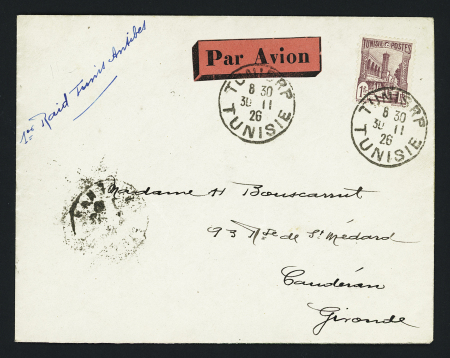 1er Raid Tunis Antibes
Par Avion
TUNIS RP
8 30
30 11
26
TUNISIE
TUNISIE POSTES
TUNIS RP
8 30
30 11
26
TUNISIE
Madame H Bouscarrut
93 Rte de St Médard
Caudéran
Gironde